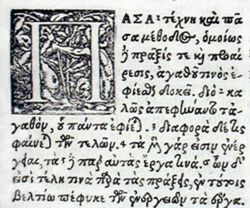 ΠΑΣΑ τέχνη καὶ πᾶ
σα μέθοδος, ὁμοίως
ἡ πρᾶξίς τε καὶ προαί
ρεσις, ἀγαθοῦ τινὸς
ἐφίεσθαι δοκεῖ. διὸ κα
λῶς ἀπεφήναντο τ'
ἀγαθὸν, οὗ πάντα ἐφίε). διαφορὰ δέ τις
φαίνε) τῶν τελῶν. τὰ μὲν γάρ εἰσιν ἐνέρ
γειαι. τὰ δὲ παρ' αὐτὰς ἔργα τινά. ὧν δ'
εἰσὶ τέλη τινὰ παρὰ τὰς πράξεις, ἐν τούτοις
βελτίω πέφυκε τῶν ἐνεργειῶν τὰ ἔργα.